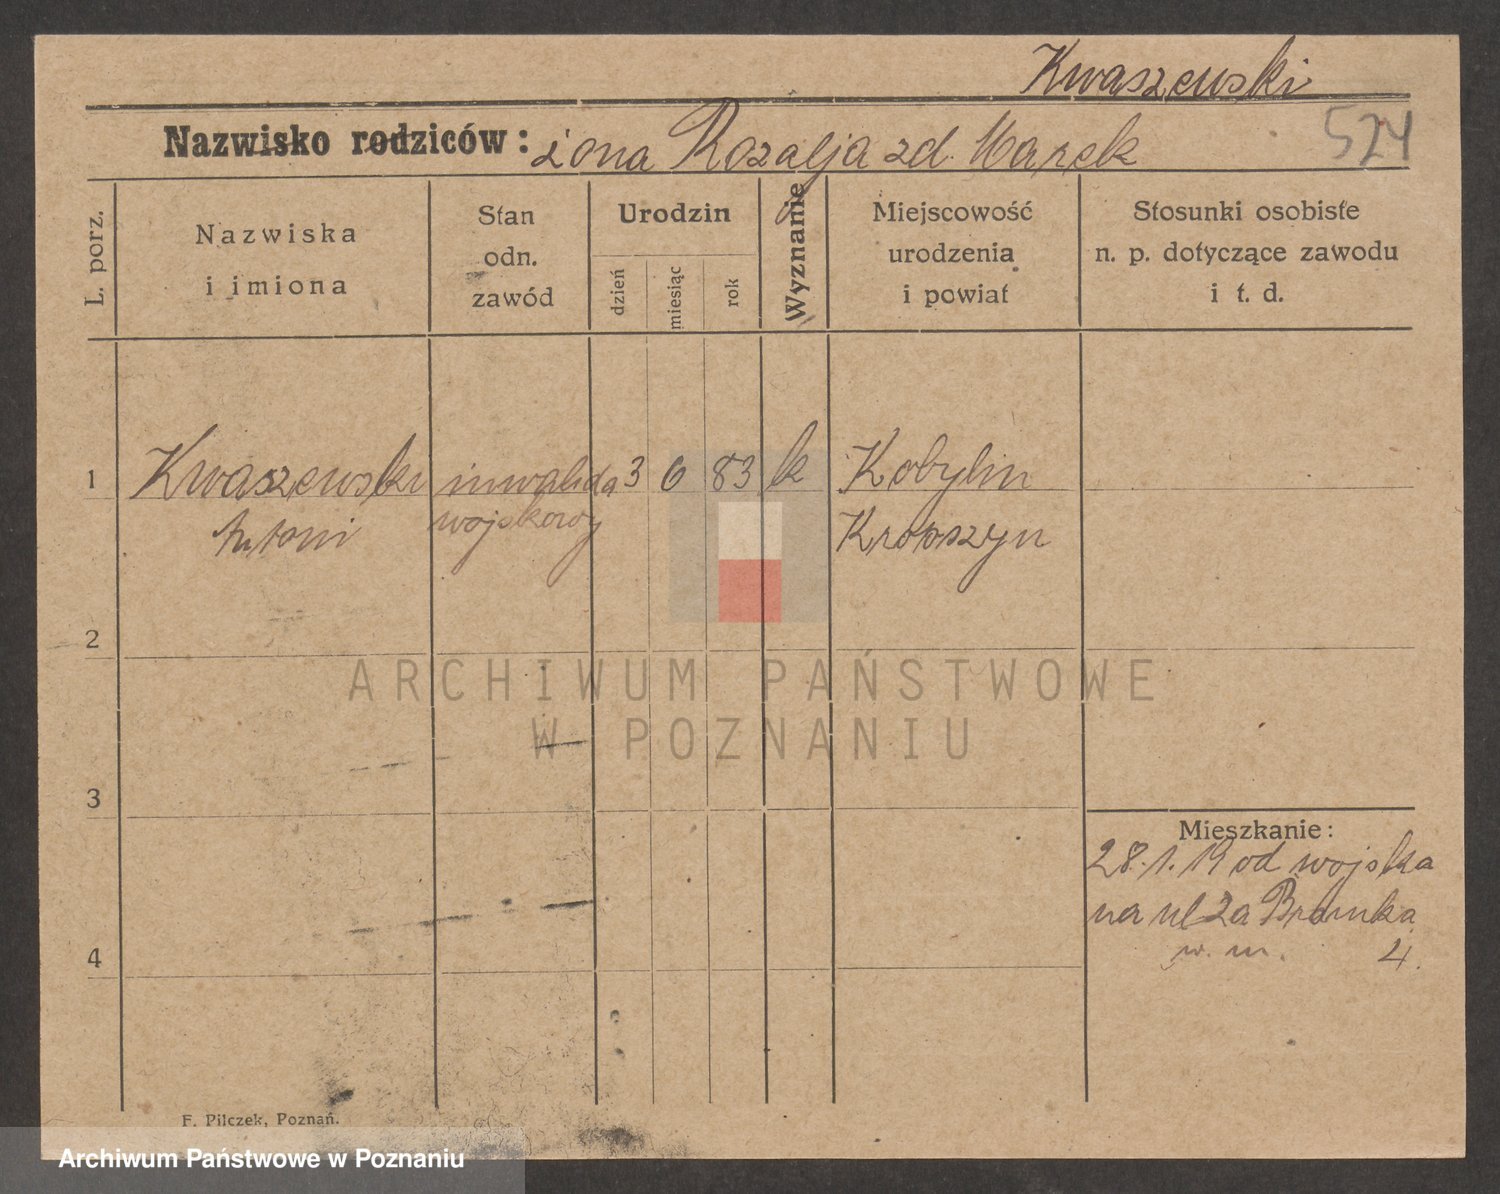 Kwaszewski
Nazwisko rodziców: żona Rozalja zd. Marek
524
L. porz.
Nazwiska
i imiona
Stan
odn.
zawód
Urodzin
dzień
miesiąc
rok
Wyznanie
Miejscowość
urodzenia
i powiat
Stosunki osobiste
n. p. dotyczące zawodu
i t. d.
1 Kwaszewski inwalida 3 6 83 k Kobylin
Antoni wojskowy
2
3
4
Mieszkanie:
28.1.19 od wojska
na ul Za Bramka
w. m. 4.
F. Pilczek, Poznań.
ARCHIWUM PAŃSTWOWE
W POZNANIU
Archiwum Państwowe w Poznaniu